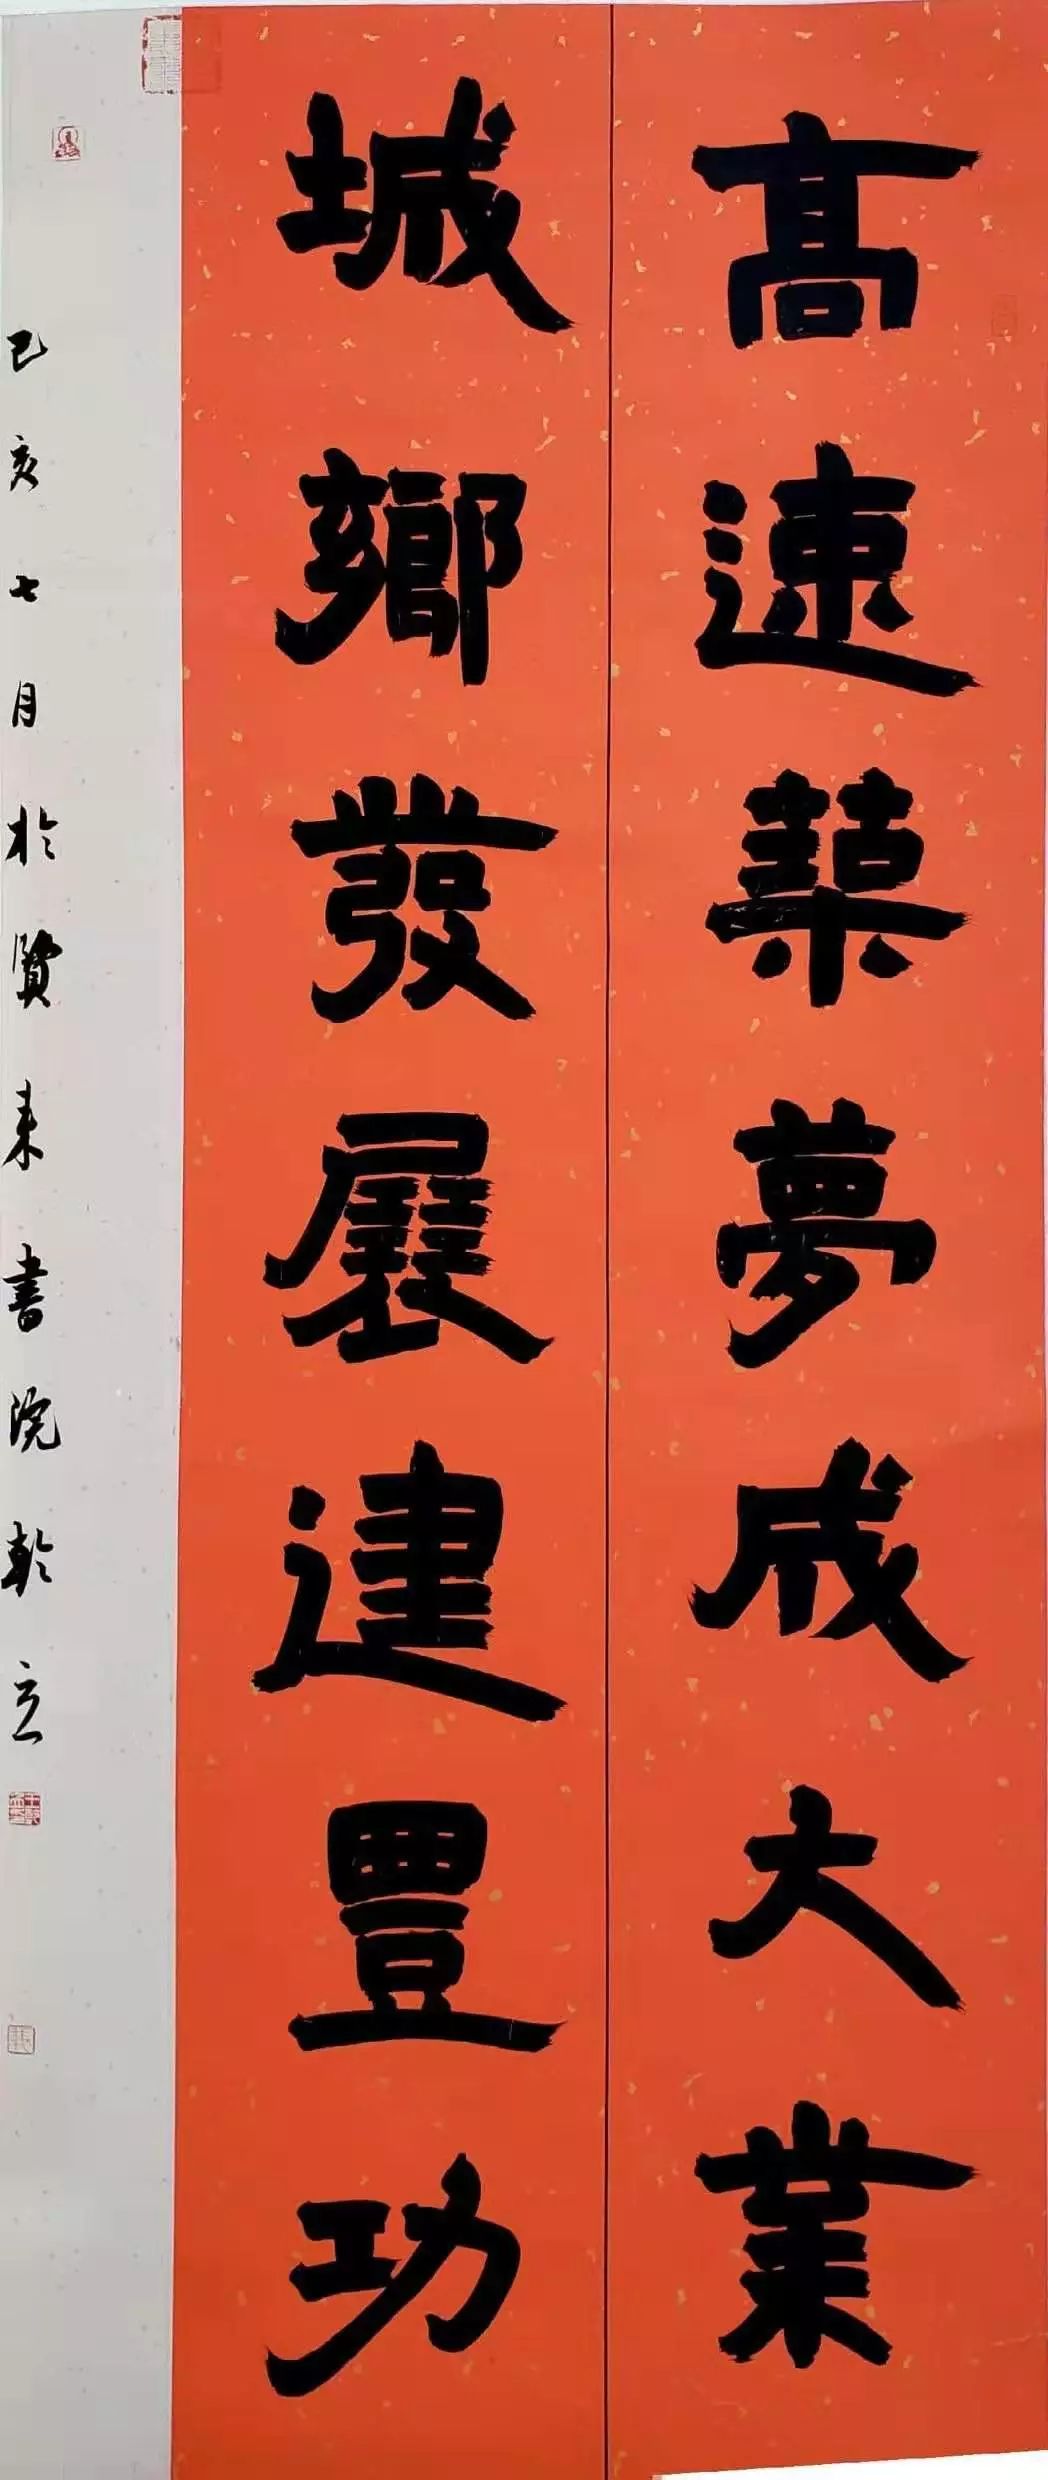 高速築夢成大業
城鄉發展建豐功
己亥七月於賢来書院乾立